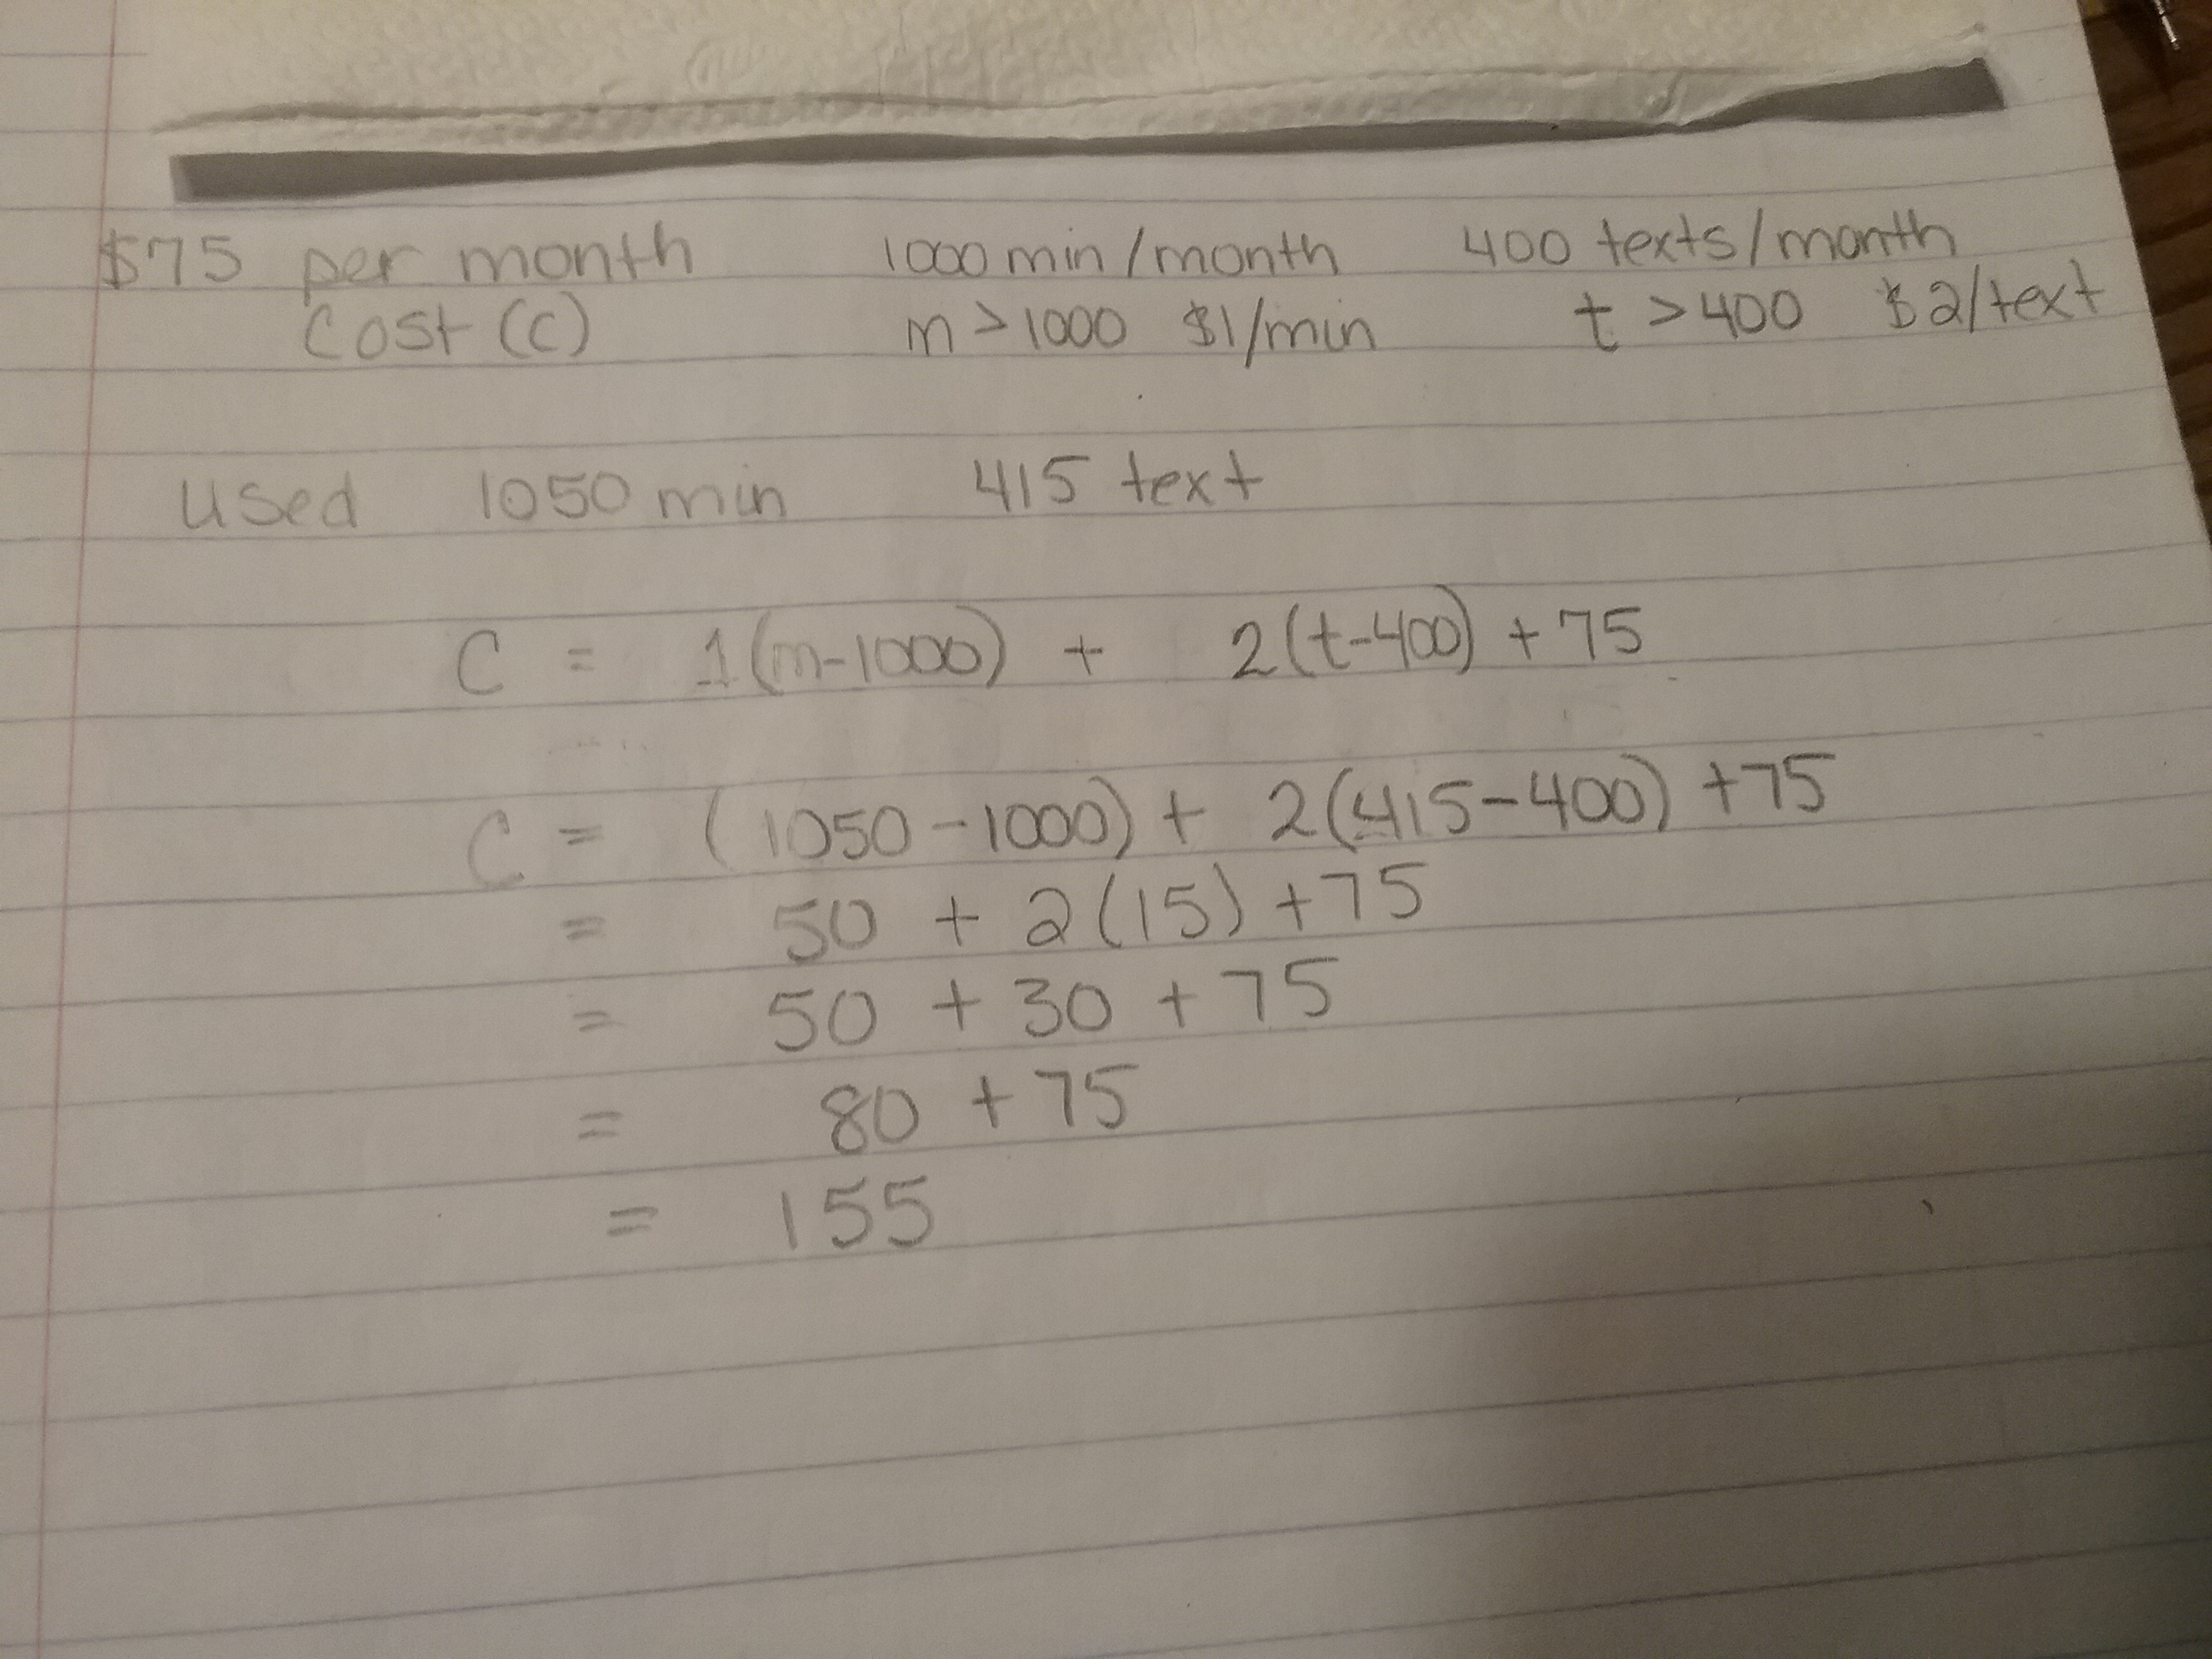 $75 per month 1000 min/month 400 texts/month
Cost (C) m > 1000 $1/min t > 400 $2/text
used 1050 min 415 text
C = 1(m-1000) + 2(t-400) + 75
C = (1050-1000) + 2(415-400) + 75
= 50 + 2(15) + 75
= 50 + 30 + 75
= 80 + 75
= 155